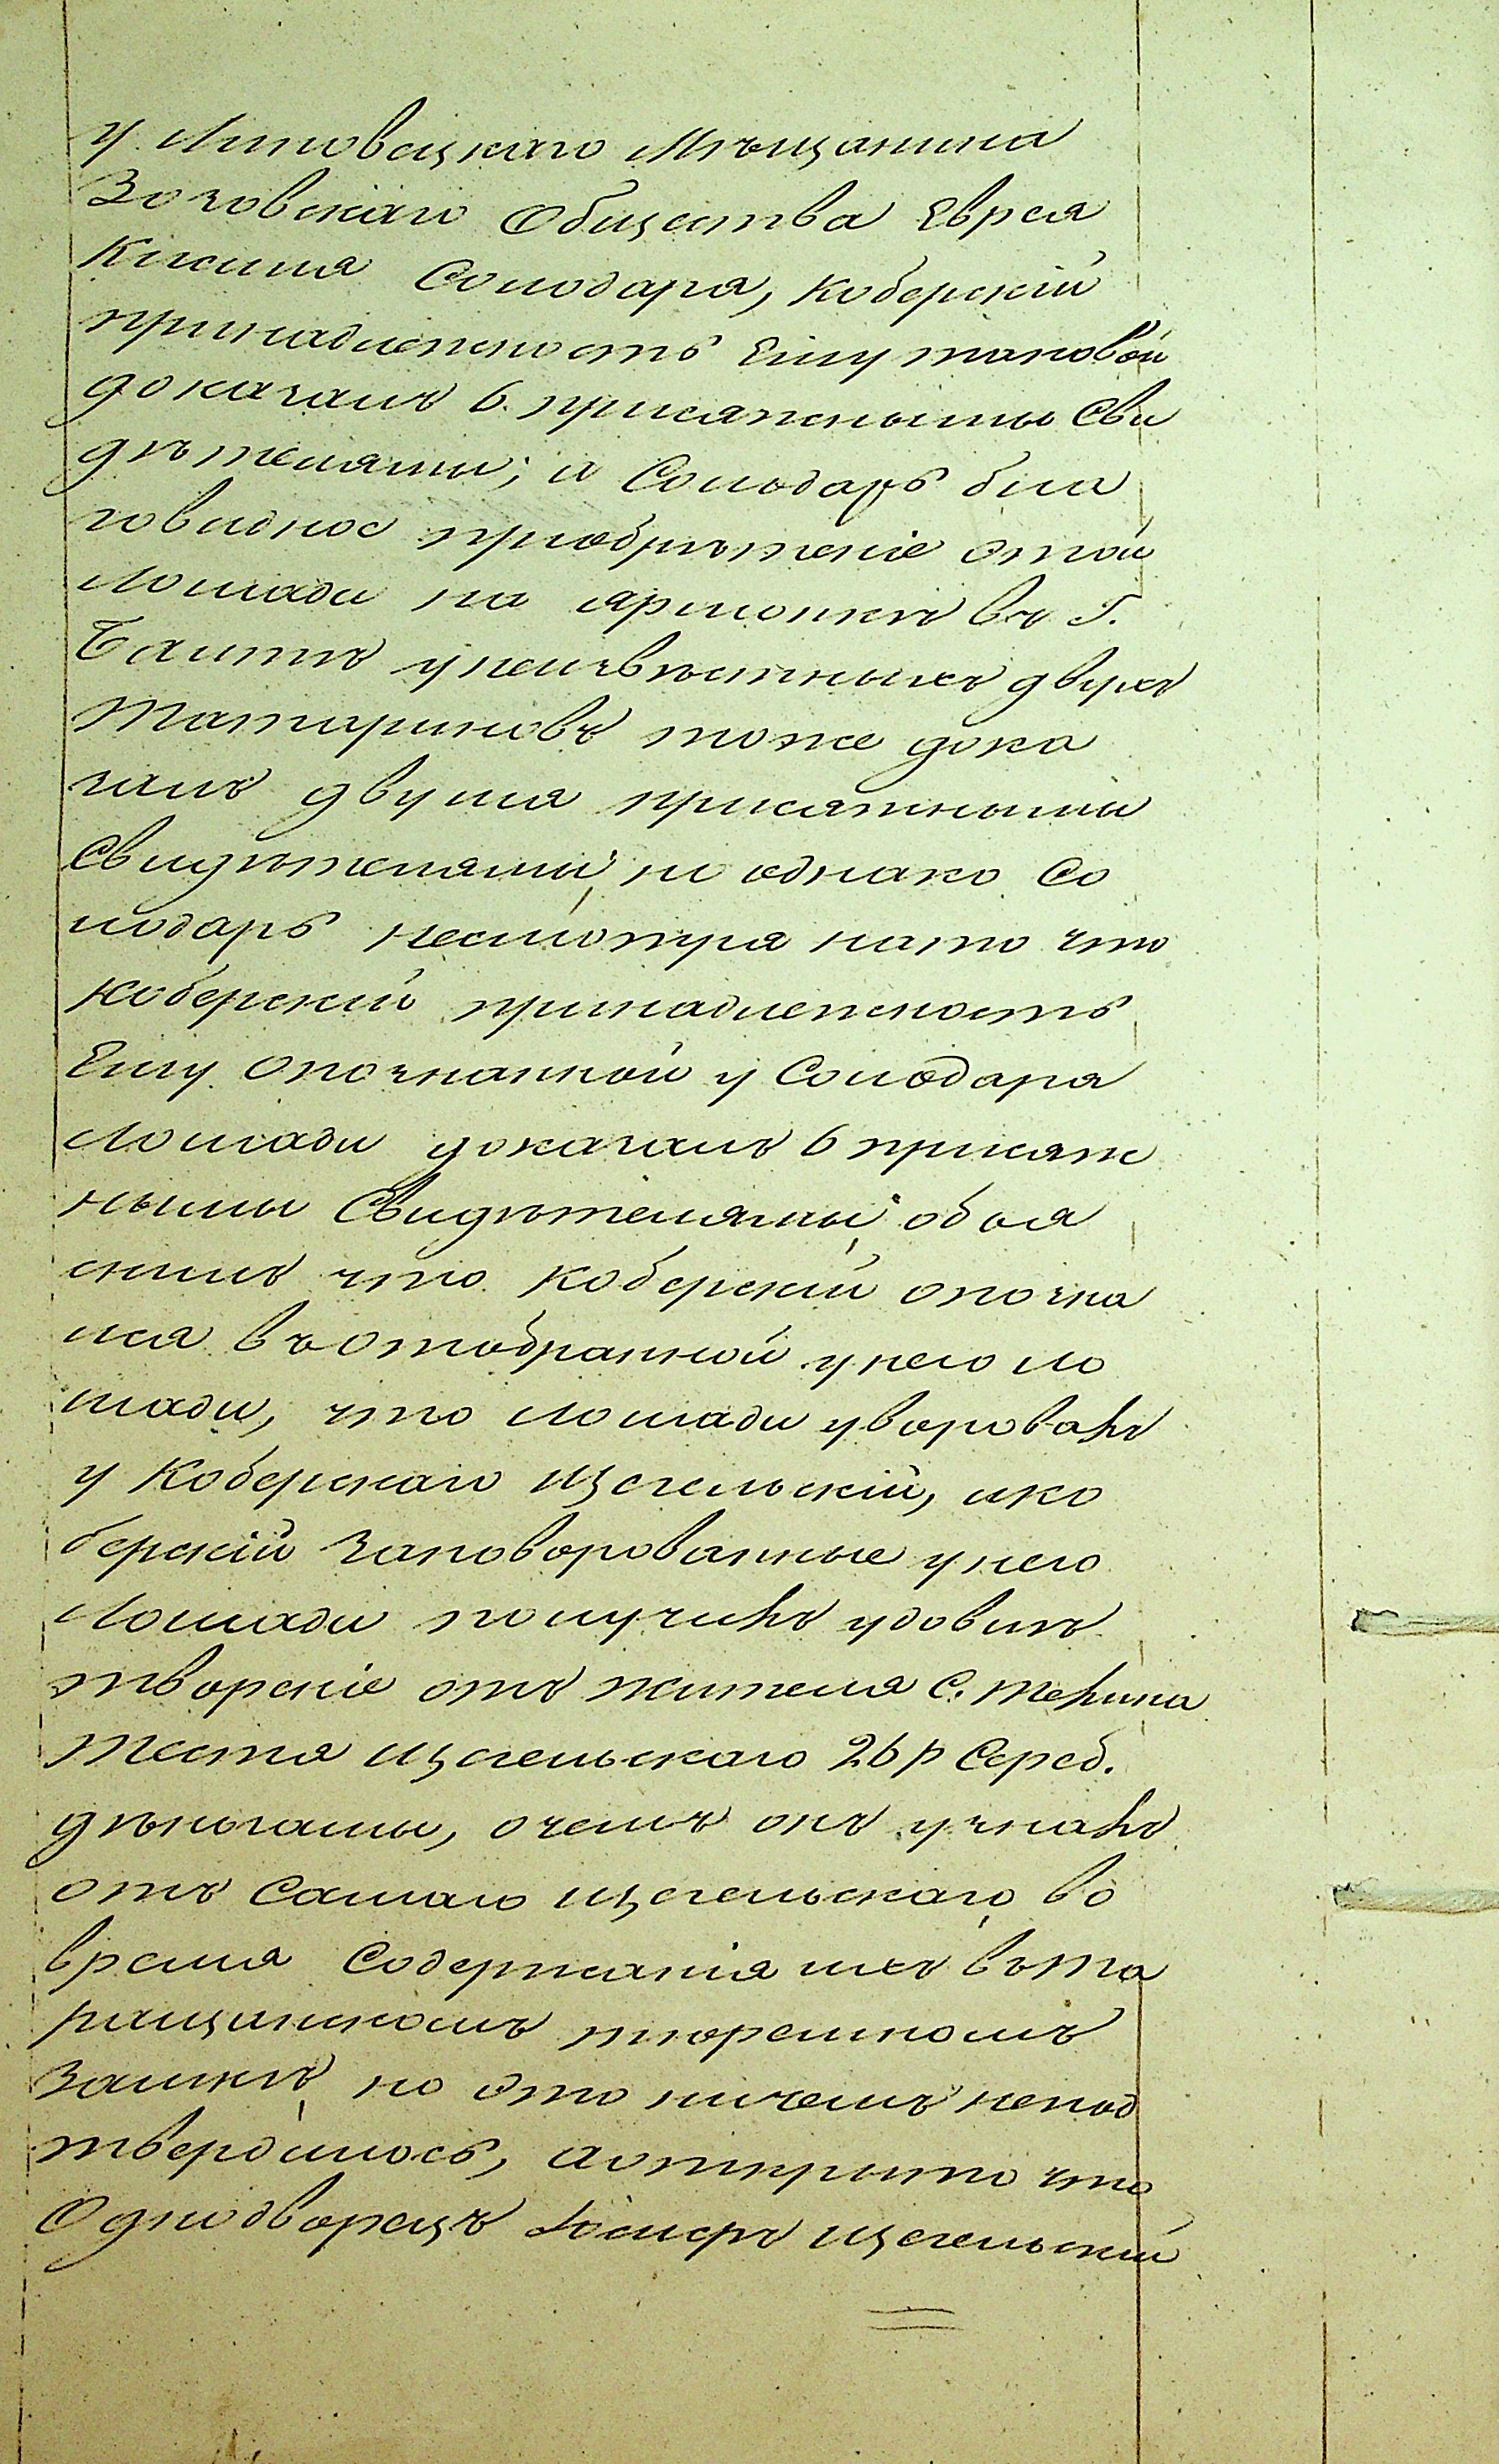 у Липовецкаго Мѣщанина
Зозовскаго Общества Еврея
Кисиля Солодаря, Коберскій
принадлежность Ему таковой
доказалъ 6. присяжными Сви
дѣтелями; и Солодарь бла
говидное приобрѣтеніе этой
лошади на ярмонкѣ въ Г.
Балтѣ у неизвѣстныхъ двухъ
Татариновъ тоже дока
залъ двумя присяжными
Свидѣтелями, но однако Со
лодарь несмотря на то что
Коберскій принадлежность
Ему опознанной у Солодаря
лошади доказалъ 6 присяж
ными Свидѣтелями, объя
снилъ что Коберскій опозна
лся въ отобранной у него ло
шади, что лошади уворовалъ
у Коберскаго Щегельскій, ико
берскій заповорованные у него
лошади получилъ удовлѣ
твореніе отъ жителя С.
Щегельскаго 26 р Сереб.
дѣньгами, очемъ онъ узналъ
отъ Самаго Щегельскаго во
время Содержанія ихъ въ Та
ращинскомъ тюремномъ
Замкѣ, но это ничемъ непод
твердилось, аоткрыто что
Однодворецъ Щегельскій